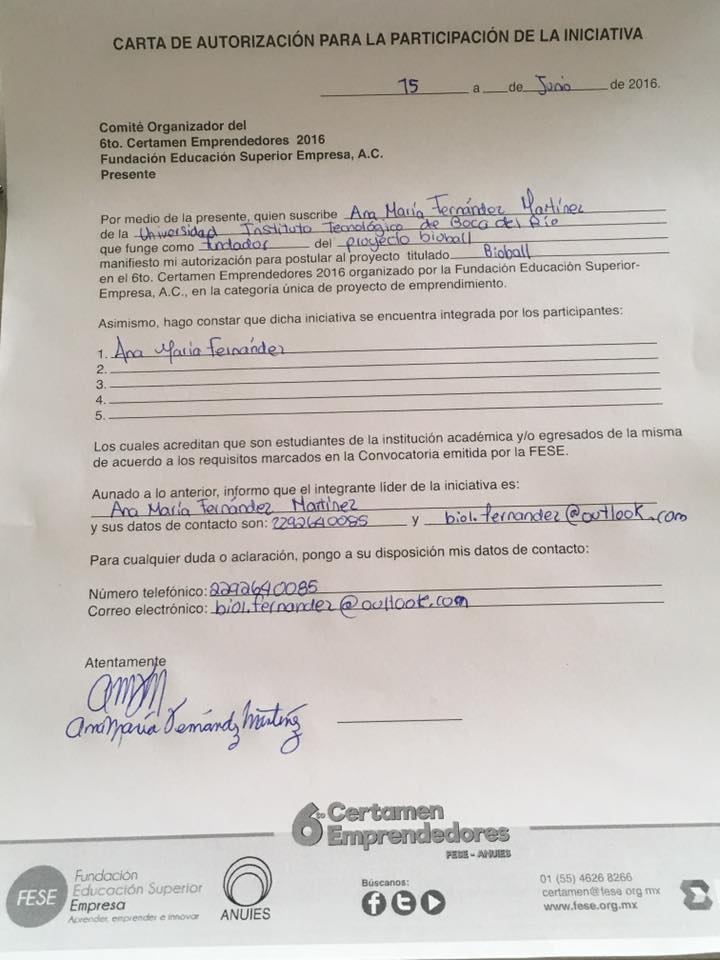 CARTA DE AUTORIZACIÓN PARA LA PARTICIPACIÓN DE LA INICIATIVA
15 a de Junio de 2016.
Comité Organizador del
6to. Certamen Emprendedores 2016
Fundación Educación Superior Empresa, A.C.
Presente
Por medio de la presente, quien suscribe Ana María Fernández Martínez
de la Universidad Instituto Tecnológico de Boca del Río
que funge como fundador del proyecto bioball
manifiesto mi autorización para postular al proyecto titulado Bioball
en el 6to. Certamen Emprendedores 2016 organizado por la Fundación Educación Superior-
Empresa, A.C., en la categoría única de proyecto de emprendimiento.
Asimismo, hago constar que dicha iniciativa se encuentra integrada por los participantes:
1. Ana María Fernández
2.
3.
4.
5.
Los cuales acreditan que son estudiantes de la institución académica y/o egresados de la misma
de acuerdo a los requisitos marcados en la Convocatoria emitida por la FESE.
Aunado a lo anterior, informo que el integrante líder de la iniciativa es:
Ana María Fernández Martínez
y sus datos de contacto son: 2292640085 y biol.fernandez@outlook.com
Para cualquier duda o aclaración, pongo a su disposición mis datos de contacto:
Número telefónico: 2292640085
Correo electrónico: biol.fernandez@outlook.com
Atentamente
Ana María Fernández Martínez
6to Certamen
Emprendedores
FESE - ANUIES
FESE
Fundación
Educación Superior
Empresa
Aprender, emprender e innovar
ANUIES
Búscanos:
01 (55) 4626 8266
certamen@fese.org.mx
www.fese.org.mx